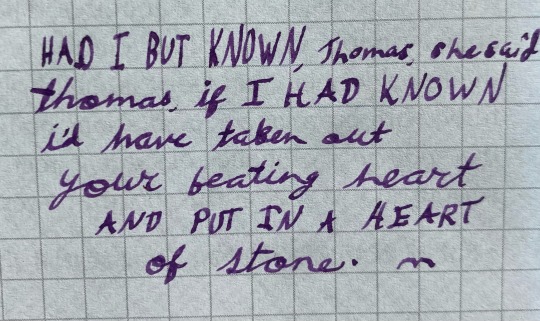 HAD I BUT KNOWN, Thomas, she said
thomas, if I HAD KNOWN
i'd have taken out
your beating heart
AND PUT IN A HEART
of stone. m